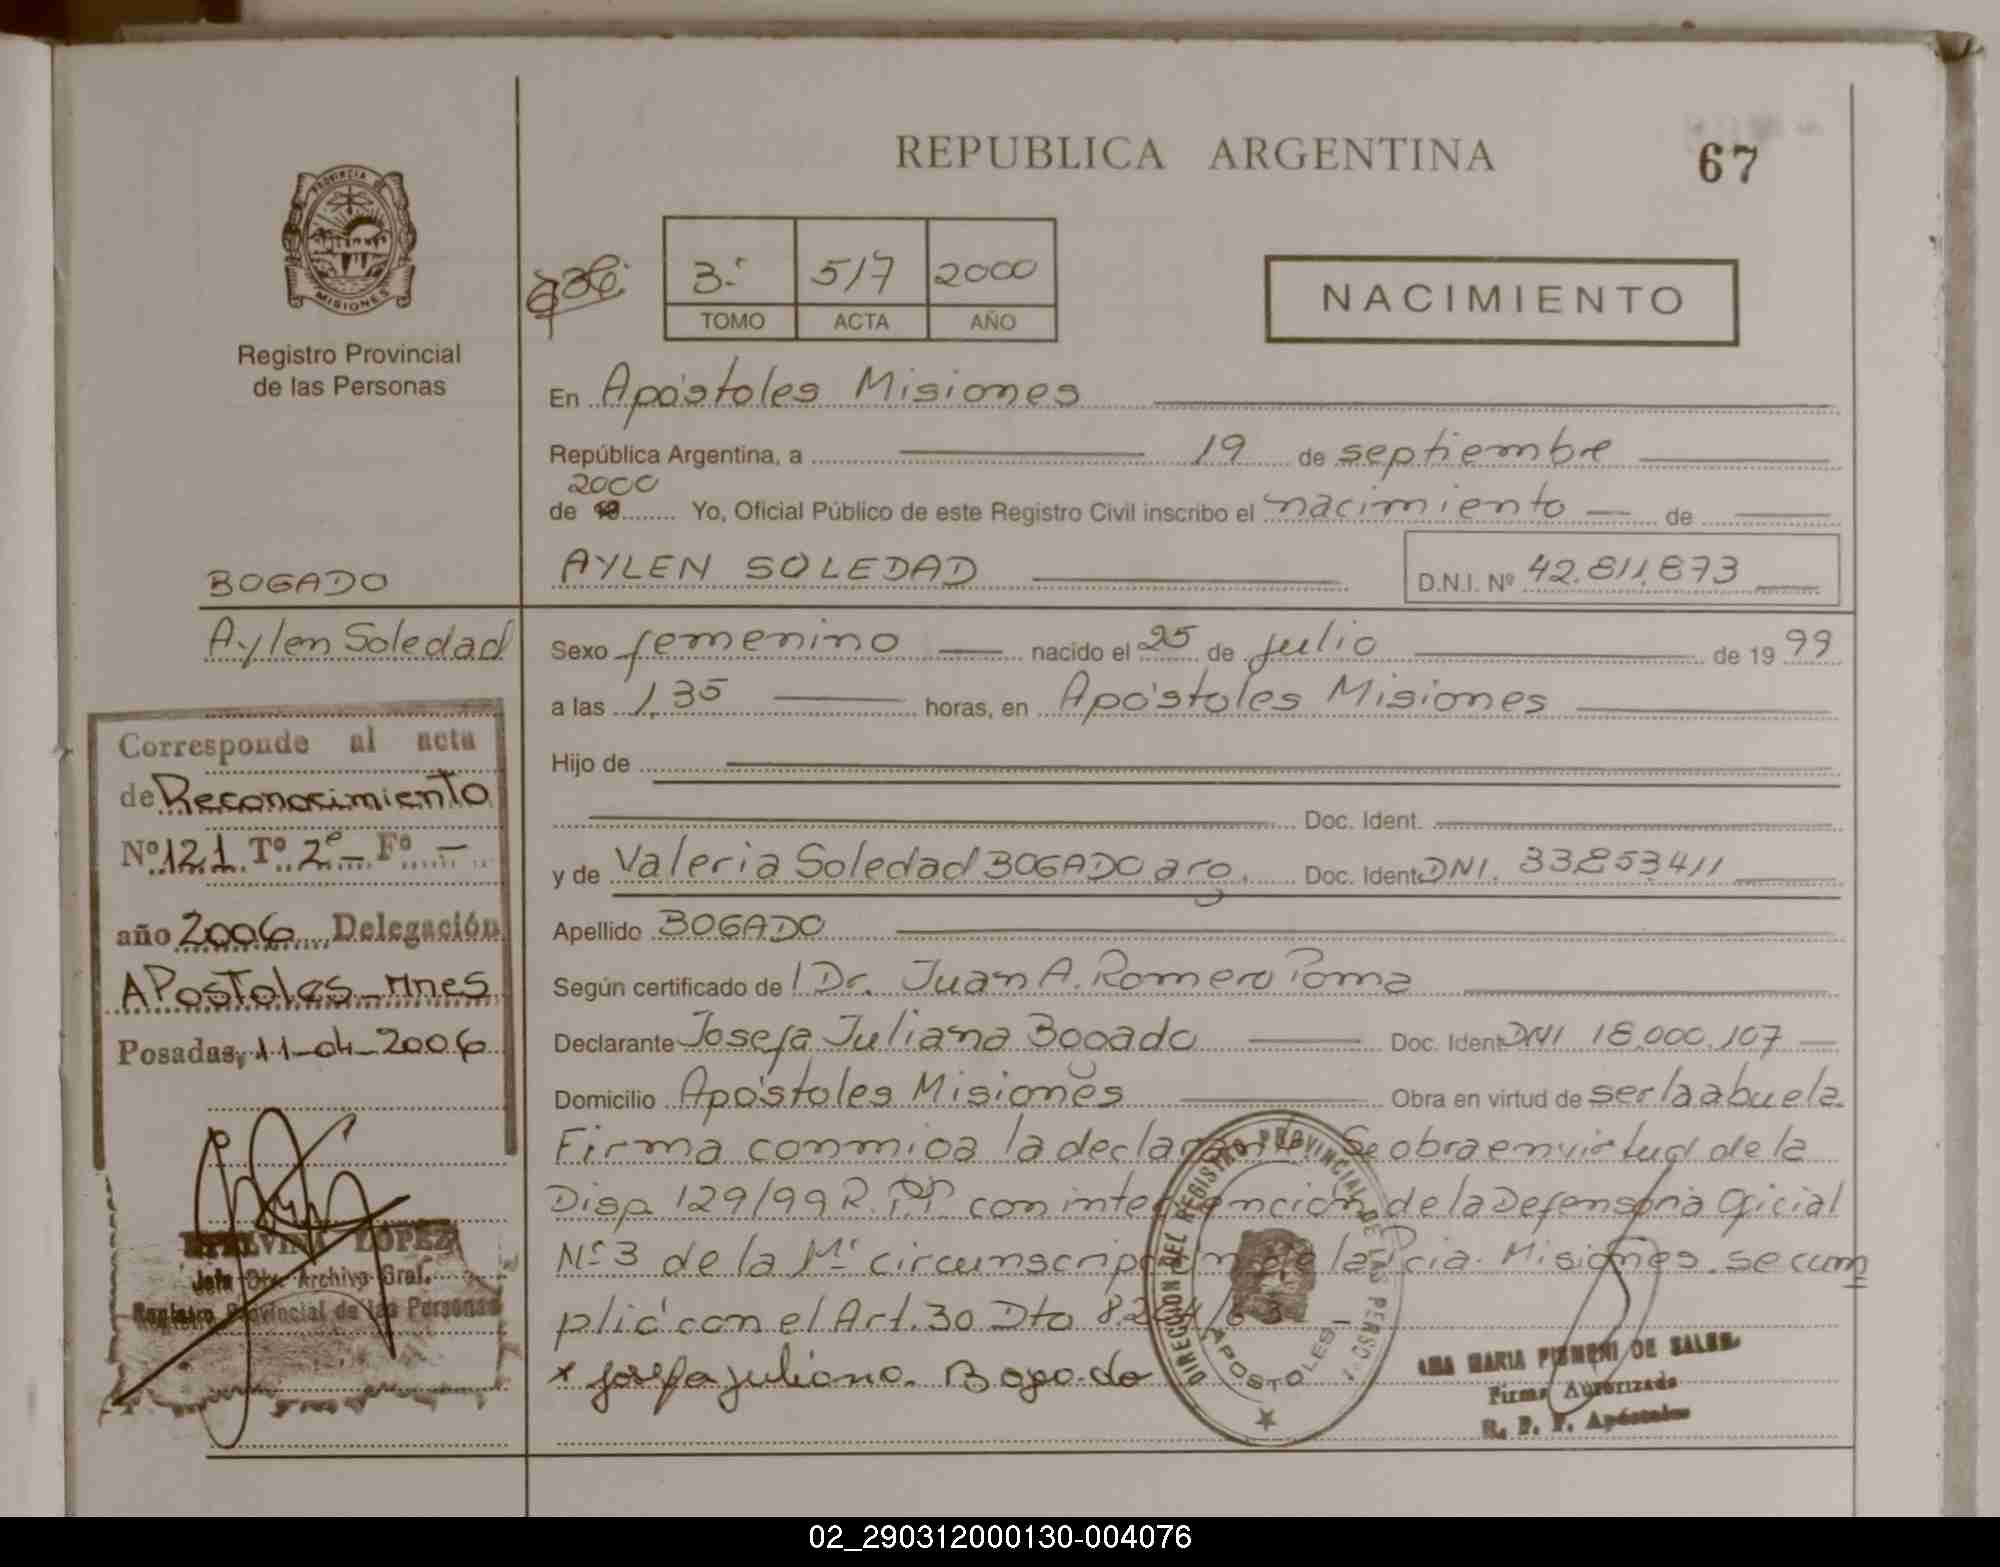 REPUBLICA ARGENTINA
67
PROVINCIA DE
MISIONES
Registro Provincial
de las Personas
3º 517 2000
TOMO ACTA AÑO
NACIMIENTO
En Apóstoles Misiones
República Argentina, a 19 de septiembre
2000
de 19 Yo, Oficial Público de este Registro Civil inscribo el nacimiento de
AYLEN SOLEDAD D.N.I. Nº 42.811.873
BOGADO
Aylen Soledad
Sexo femenino nacido el 25 de Julio de 19 99
a las 1,35 horas, en Apóstoles Misiones
Hijo de
Doc. Ident.
y de Valeria Soledad BOGADO arg. Doc. Ident. DNI. 33853411
Apellido BOGADO
Según certificado de l Dr. Juan A. Romero Poma
Declarante Josefa Juliana Bogado Doc. Ident. DNI 18.000.107
Domicilio Apóstoles Misiones Obra en virtud de ser la abuela
Firma conmigo la declarante Se obra en virtud de la
Disp. 129/99 R.P.P. con intervención de la Defensoria Oficial
Nº 3 de la 1º circunscripción de la Pcia. Misiones. se cum
plió con el Art. 30 Dto 8204/63 -
x Josefa Juliana Bogado
Corresponde al acta
de Reconocimiento
Nº 121 Tº 2º Fº -
año 2006 Delegación
APostoles - Mnes
Posadas, 11-04-2006
LOPEZ
Jefa Div. Archivo Gral.
Registro Provincial de las Personas
DIRECCION DEL REGISTRO PROVINCIAL DE LAS PERSO
APOSTOLES
MARIA DE
Firma Autorizada
R. P. P. Apóstoles
02_290312000130-004076